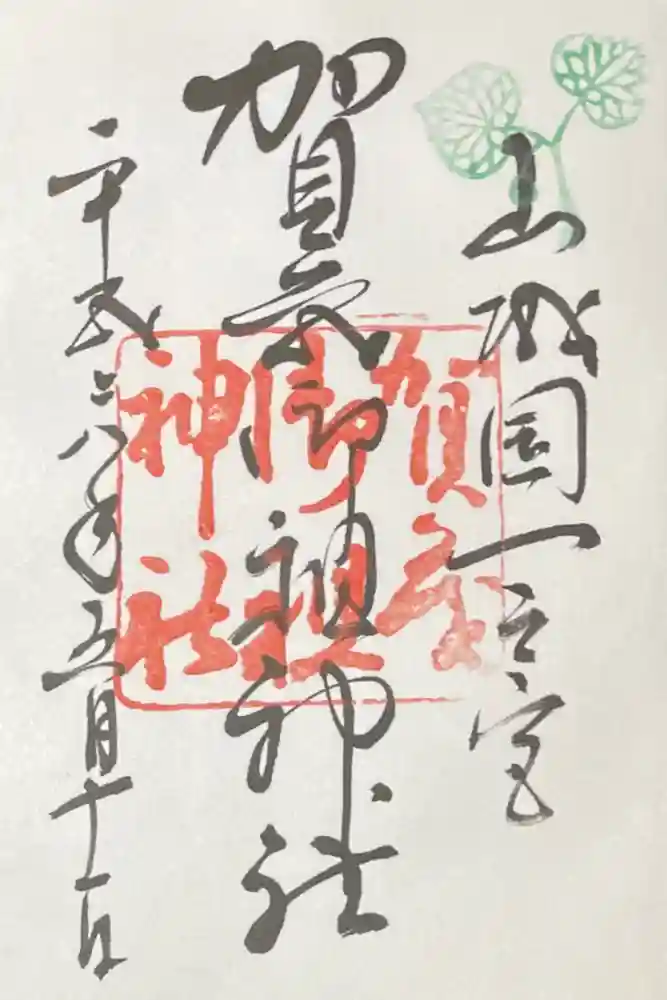 山城國一之宮
賀茂御祖神社
平成二八年五月十一日
賀茂
御祖
神社